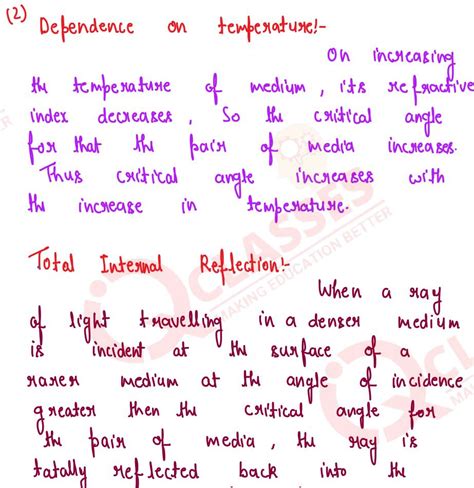 (2) Dependence on temperature!-
On increasing
the temperature of medium, its refractive
index decreases, So the critical angle
for that the pair of media increases.
Thus critical angle increases with
the increase in temperature.
Total Internal Reflection!-
When a ray
of light travelling in a denser medium
is incident at the surface of a
rarer medium at the angle of incidence
greater then the critical angle for
the pair of media, the ray is
totally reflected back into the
CLASSES
TAKING EDUCATION BETTER